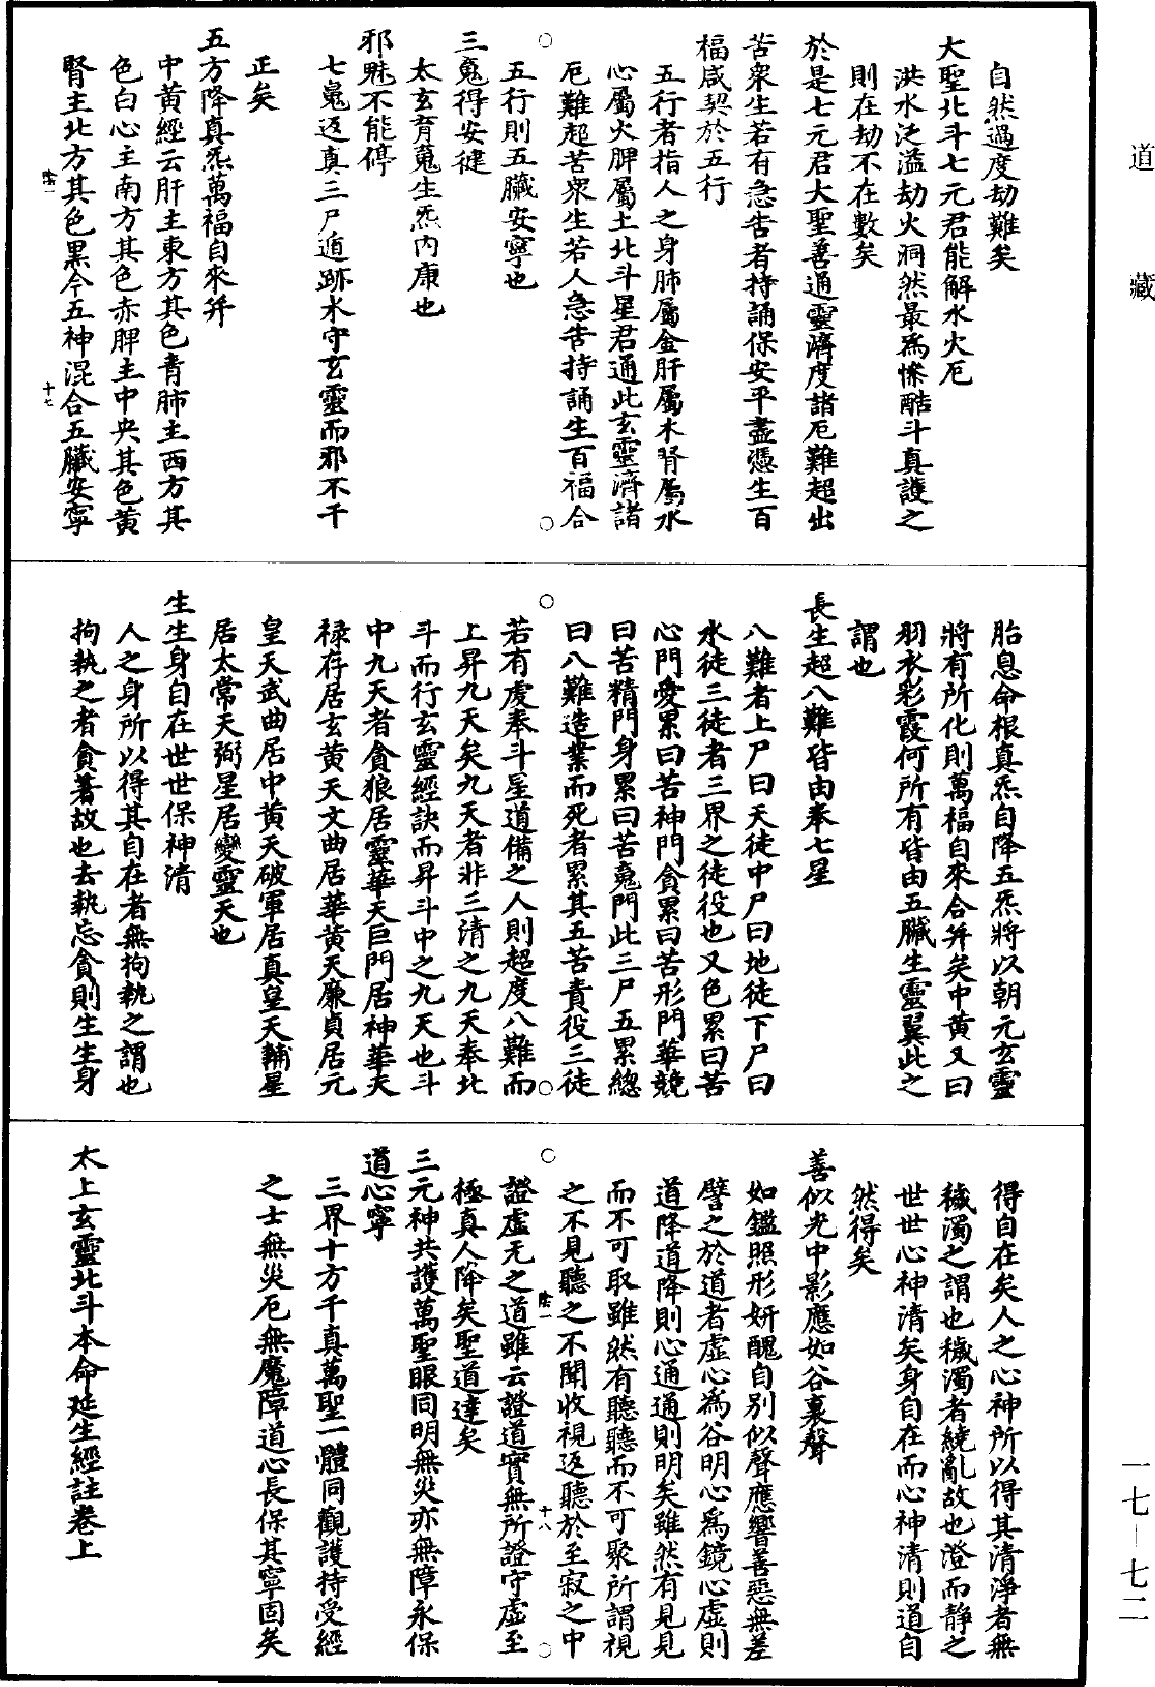 道藏
自然過度劫難矣
大聖北斗七元君能解水火厄
洪水泛溢劫火洞然最爲慘酷斗真護之
則在劫不在數矣
於是七元君大聖善通靈濟度諸厄難超出
苦衆生若有急告者持誦保安平盡憑生百
福咸契於五行
五行者指人之身肺屬金肝屬木腎屬水
心屬火脾屬土北斗星君通此玄靈濟諸
厄難超苦衆生若人急告持誦生百福合
五行則五臟安寧也
三䰟得安健
太玄育䰟生炁內康也
邪魅不能停
七䰟返真三尸遁跡水守玄靈而邪不干
正矣
五方降真炁萬福自來并
中黃經云肝主東方其色青肺主西方其
色白心主南方其色赤脾主中央其色黃
腎主北方其色黑今五神混合五臟安寧
陰一
十七
胎息命根真炁自降五炁將以朝元玄靈
將有所化則萬福自來合并矣中黃又曰
羽衣彩霞何所有皆由五臟生靈翼此之
謂也
長生超八難皆由奉七星
八難者上尸曰天徒中尸曰地徒下尸曰
水徒三徒者三界之徒役也又色累曰苦
心門愛累曰苦神門貪累曰苦形門華競
曰苦精門身累曰苦䰟門此三尸五累總
曰八難造業而死者累其五苦責役三徒
若有虔奉斗星道備之人則超度八難而
上昇九天矣九天者非三清之九天奉北
斗而行玄靈經訣而昇斗中之九天也斗
中九天者貪狼居靈華天巨門居神華天
祿存居玄黃天文曲居華黃天廉貞居元
皇天武曲居中黃天破軍居真皇天輔星
居太常天弼星居變靈天也
生生身自在世世保神清
人之身所以得其自在者無拘執之謂也
拘執之者貪著故也去執忘貪則生生身
得自在矣人之心神所以得其清淨者無
穢濁之謂也穢濁者繞亂故也澄而靜之
世世心神清矣身自在而心神清則道自
然得矣
善似光中影應如谷裏聲
如鑑照形妍醜自別似聲應響善惡無差
譬之於道者虛心爲谷明心爲鏡心虛則
道降道降則心通通則明矣雖然有見見
而不可取雖然有聽聽而不可聚所謂視
之不見聽之不聞收視返聽於至寂之中
陰一
十八
證虛无之道雖云證道實無所證守虛至
極真人降矣聖道達矣
三元神共護萬聖眼同明無災亦無障永保
道心寧
三界十方千真萬聖一體同觀護持受經
之士無災厄無魔障道心長保其寧固矣
太上玄靈北斗本命延生經註卷上
一七—七二